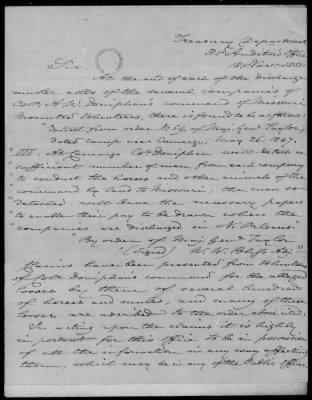 Treasury Department
3d Auditor's Office
18 Nov. 1850
Sir,
At the end of each of the discharge
muster rolls of the several companies of
Col. A. W. Doniphan's command of Missouri
Mounted Volunteers, there is found to be as follows:
"Extract from order No 59, of Maj. Genl Taylor,
dated camp near Camargo, May 26. 1847.
"III At Camargo Col Doniphan will detach a
"sufficient number of men, from each company
"to conduct the horses and other animals of the
"command by land to Missouri, the men so
"detached will leave the necessary papers
"to enable their pay to be drawn when the
"companies are discharged in N. Orleans.
By order of Maj. Genl Taylor
(Signed W. W. Bliss Adj."
Claims have been presented from Volunteers
of Col Doniphan's command for the alleged
losses by them of several hundreds
of horses and mules, and many of these
losses are ascribed to the order above cited.
In acting upon the claims it is highly
important for this office to be in possession
of all the information in any way affecting
them, which may be in any of the Public Offices